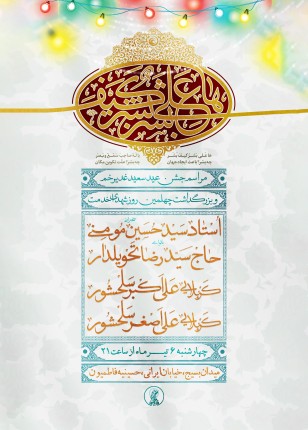 ها علی بشر کیف بشر
مراسم جشن عید سعید غدیر خم
و بزرگداشت چهلمین روز شهدای خدمت
استاد سید حسین مومنی
حاج سید رضا تحویلدار
کربلایی علی اکبر سلحشور
کربلایی علی اصغر سلحشور
چهارشنبه ۶ تیر ماه از ساعت ۲۱
میدان بسیج، خیابان ایرانی، حسینیه فاطمیون